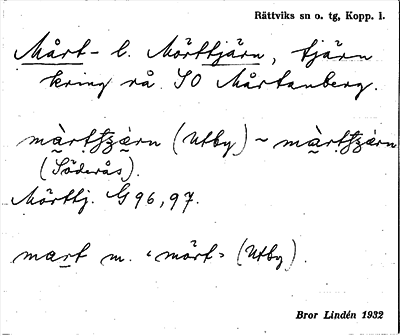 Rättviks sn o. tg, Kopp. l.
Mårt- l. Mörttjärn, tjärn
kring rå SO Mårtanberg.
(Utby) ~
(Söderås).
Mörttj. G 96, 97.
mart m. "mört" (Utby).
Bror Lindén 1932